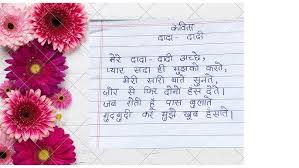 कविता
दादा - दादी
मेरे दादा - दादी अच्छे,
प्यार सदा ही मुझको करते,
मेरी सारी बातें सुनते,
जोर से फिर दोनों हँस देते।
जब रोती हूँ पास बुलाते
गुदगुदी कर मुझे खूब हँसाते।